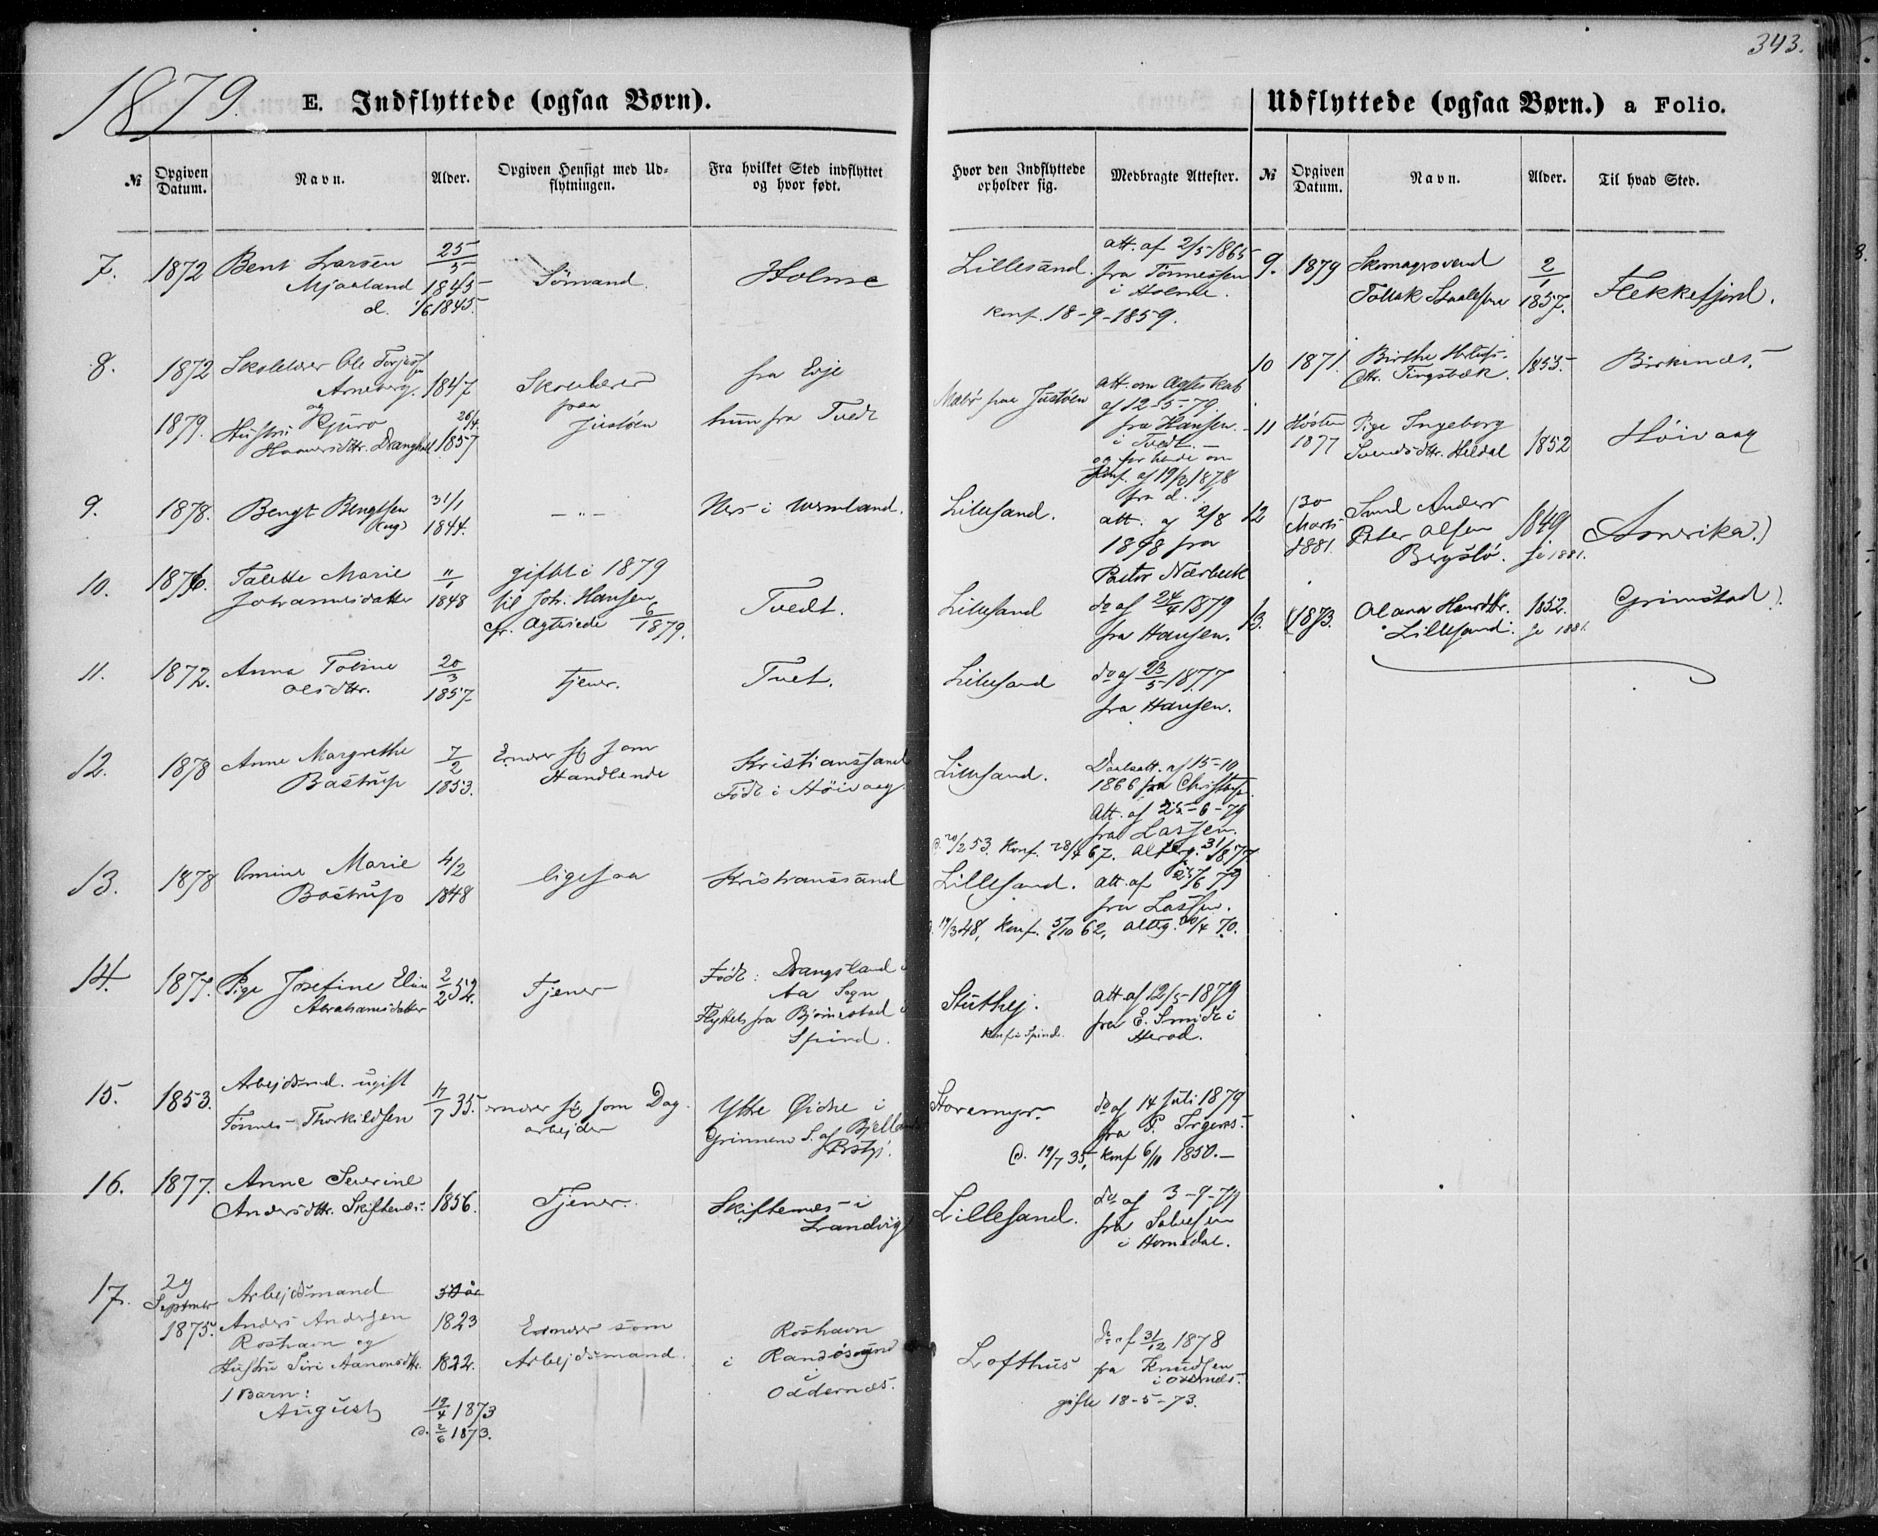 343.
1879.
E. Indflyttede (ogsaa Børn).
Udflyttede (ogsaa Børn.) a Folio.
№
Opgiven Datum.
Navn.
Alder.
Opgiven Hensigt med Udflytningen.
Fra hvilket Sted indflyttet og hvor født.
Hvor den Indflyttede opholder sig.
Medbragte Attester.
№
Opgiven Datum.
Navn.
Alder.
Til hvad Sted.
7.
1872
Bent Larsen
Mjaaland
d. 1/6 1845.
25/5
1845
Sömand.
Holme
Lillesand.
att. af 2/5 1865
fra Tönnessen
i Holme.
Konf. 18-9-1859.
8.
1872
Skolelærer Ole
Arneberg.
1847
1879.
og
Hustru
26/4
1857
paa
Justöen
fra Evje
hun fra Tvedt
paa Justöen
att. om Ægteskab
af 12-5-79.
fra Hansen
i Tvedt.
og for hende om
Konf. af 19/3 1878
fra d. S.
9.
1878.
Bengt Bengtsen
(ug)
31/1
1844.
- " -
Nes i Wermland.
Lillesand.
att. af 2/8
1878 fra
Pastor Nærbeck
10.
1876.
Talette Marie
Johannesdatter
11/1
1848
gift i 1879
til Joh. Hansen
cfr. Ægteviede 6/1879.
Tvedt.
Lillesand
do af 24/4 1879
fra Hansen.
11.
1872.
Anna Toline
Olsdtr.
20/3
1857
Tjener.
Tvet.
Lillesand
do af 23/5 1877
fra Hansen.
12.
1878
Anne Margrethe
Bastrup
7/2
1853.
Ernærer sig som
Handlende
Kristianssand
Född i Höivaag.
Lillesand.
Daabsatt. af 15-10
1866 fra
Att. af 25-6-79
fra Lassen.
d. 20/2 53. Konf. 28/4 67. Alterg. 31/5 1877
13.
1878
Amine Marie
Bastrup
4/2
1848
ligesaa
Kristianssand
Lillesand.
att. af 25/6 79
fra Lassen.
d. 19/3 48, Konf. 5/10 62, altg. 20/4 70.
14.
1877.
Pige Josefine Eline
Abrahamsdatter
2/2 52.
Tjener
Född: Drangsland i
Aa Sogn
Flyttet fra Björnestad i
Spind.
Stuthej.
Konf. i Spind.
att. af 12/5-1879
fra E. Smidt i
Herod.
15.
1853.
Arbejdsmd. ugift
Tönnes Thorkildsen
17/7 35.
ernærer sig som Dag-
arbejder
Ytre Øidne i
Grinnem S. af Bjelland
Prstgj.
Storemyr.
do af 14 Juli 1879
fra P.
d. 19/7 35, Konf 6/10 1850.-
16.
1877.
Anne Severine
Andersdtr. Skiftenes.
1856.
Tjener.
Skiftenes i
Landvig
Lillesand.
do af 3-9-79
fra Salvesen
i Homedal.
17.
29
September
1875.
Arbejdsmand
Anders Andersen
Roshavn og
Hustru Siri Aanonsdtr.
1 Barn:
August
1823
1822.
19/4 1873
d. 2/6 1873.
Ernærer som
Arbejdsmand.
Roshavn
i Randösund
i
Oddernes.
Lofthus
Do af 31/12 1878
fra Knudsen
i Oddernes.
gifte 18-5-73.
9.
1879
Skomagersvend
Tollak Staalesen
2/1
1857.
Flekkefjord.
10
1871.
Birthe
Dtr. Tingsbæk.
1853.
Birkenæs.
11
Hösten
1877
Pige Ingeborg
Svendsdtr. Heldal
1852
Höivaag
12
(30
Marts
1881.
Smed Anders
Peter Olsen
Bergslö.
1849.
se 1881.
Amerika.)
13.
(1873.
Olana Hansdtr.
Lillesand.
1852.
se 1881.
Grimstad).